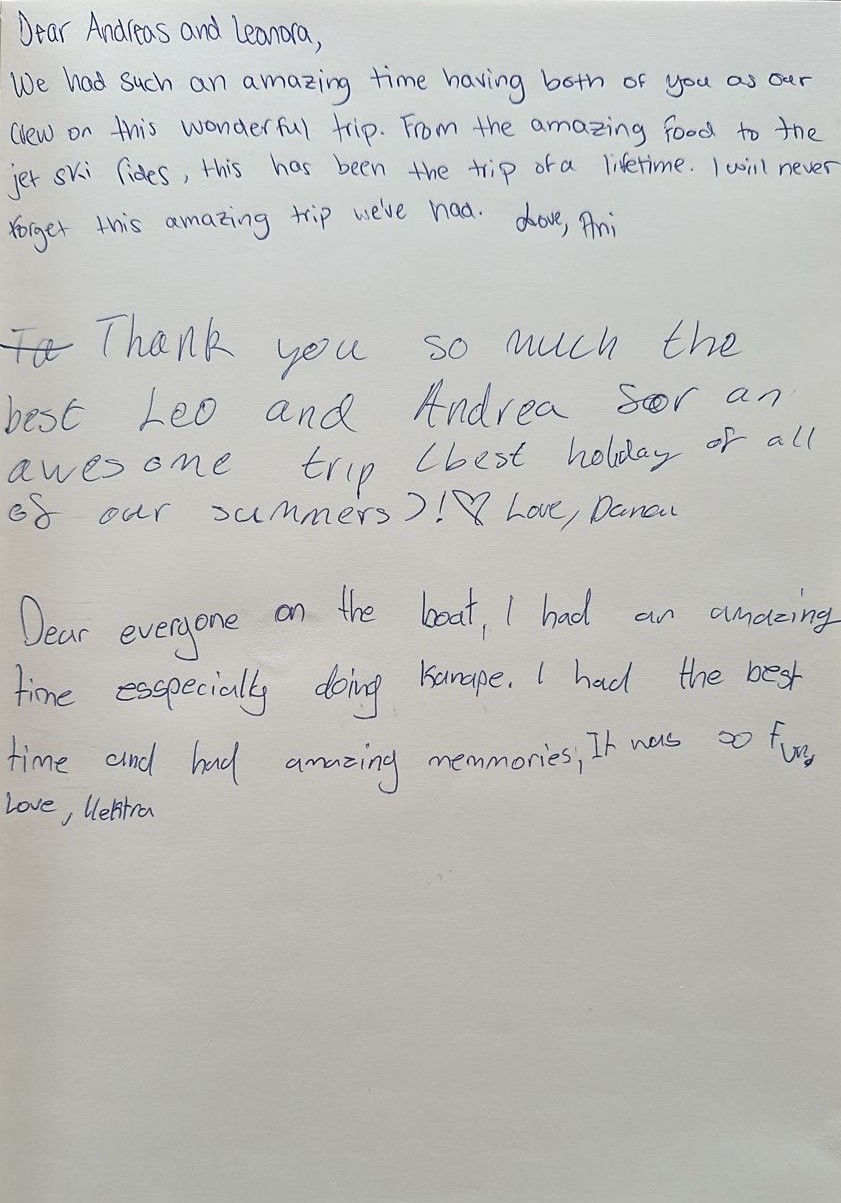 Dear Andreas and Leanora,
We had such an amazing time having both of you as our
crew on this wonderful trip. From the amazing food to the
jet ski rides, this has been the trip of a lifetime. I will never
forget this amazing trip we've had. Love, Ani
To Thank you so much the
best Leo and Andrea for an
awesome trip (best holiday of all
of our summers)!♡ Love, Danau
Dear everyone on the boat, I had an amazing
time esspecially doing kanape. I had the best
time and had amazing memmories, It was so fun,
Love,